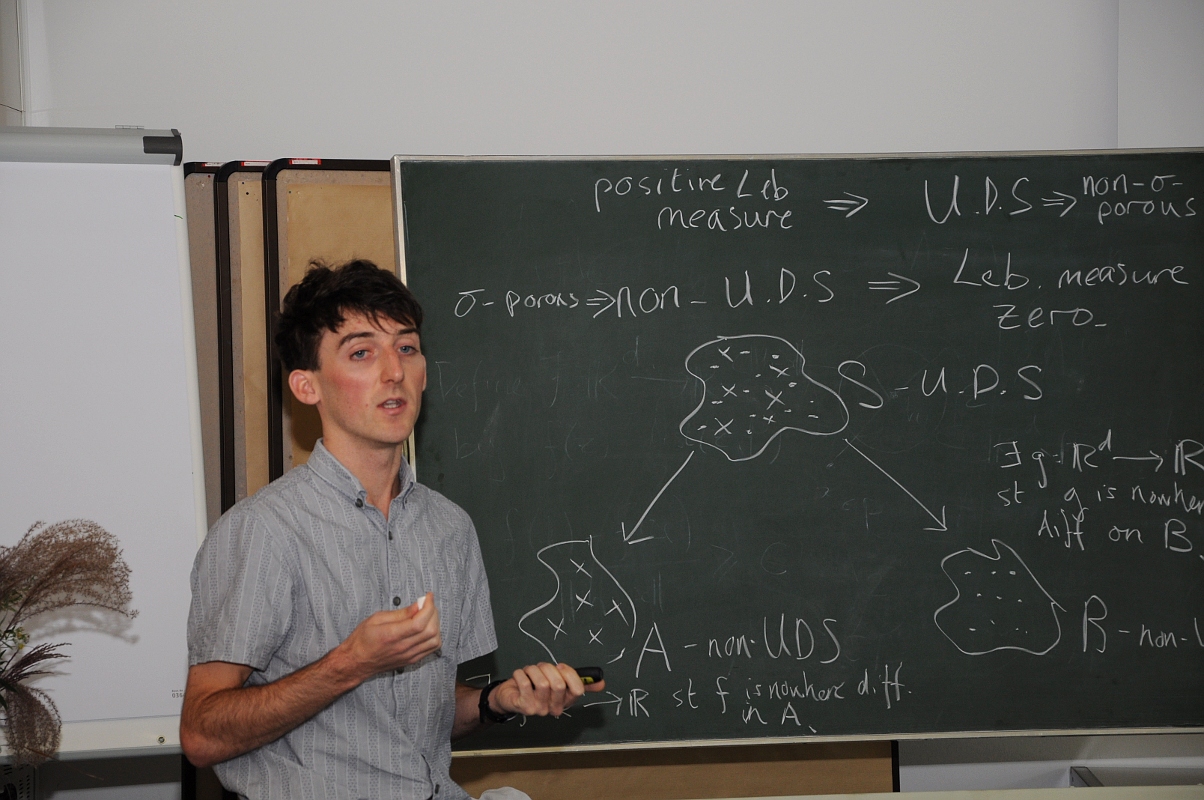 positive Leb
measure ⇒ U.D.S ⇒ non-σ-
porous
σ-porous ⇒ non-U.D.S ⇒ Leb. measure
zero
S-U.D.S
∃ g: ℝᵈ → ℝ
st g is nowher
diff on B
A-non-UDS
B-non-U
→ ℝ st f is nowhere diff.
in A.